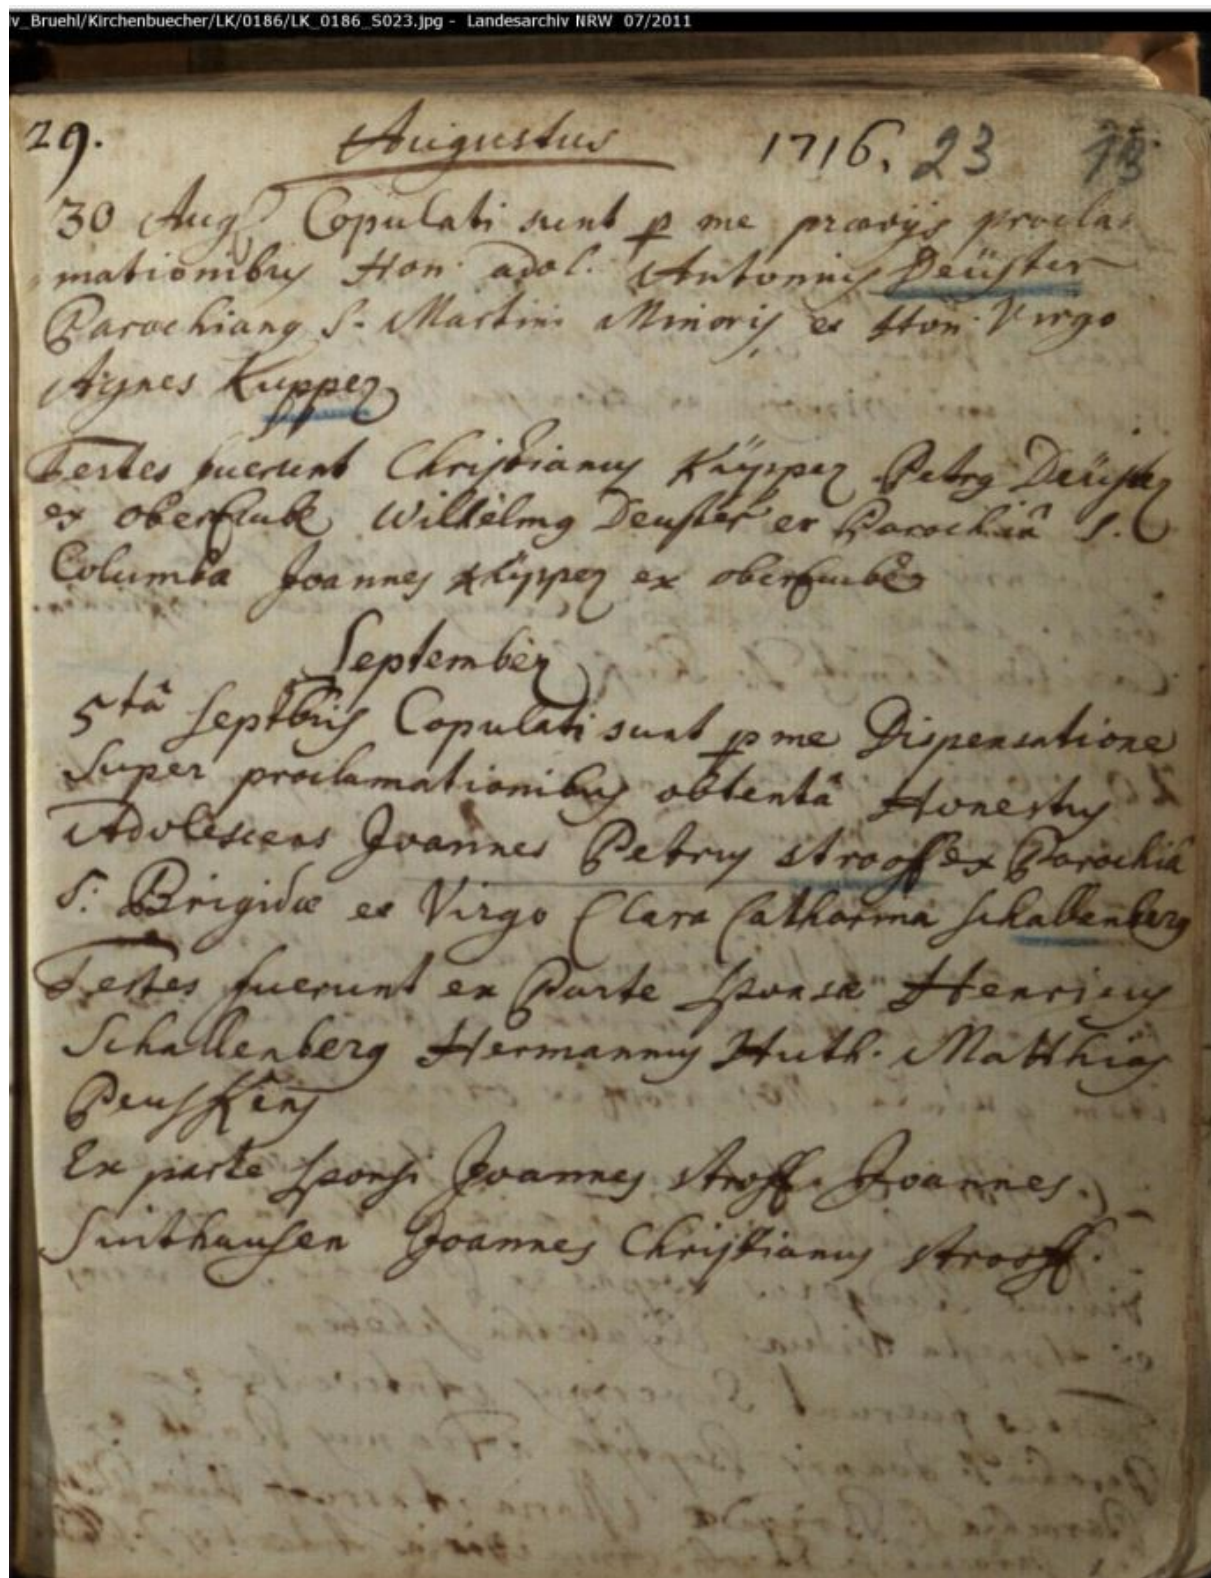 v_Bruehl/Kirchenbuecher/LK/0186/LK_0186_S023.jpg - Landesarchiv NRW 07/2011
29. Augustus 1716. 23
30 Aug Copulati sunt p me prævijs procla-
mationibus Hon. adol. Antonius Deüster
Parochianus S. Martini Minoris et Hon. Virgo
Agnes Kupper
Testes fuerunt Christianus Küpper Petrus Deüster
ex Wilhelmus Deuster ex Parochiâ S.
Columba Joannes Küpper ex
September
5tâ Septbris Copulati sunt p me Dispensatione
Super proclamationibus obtentâ Honestus
Adolescens Joannes Petrus strooff ex Parochiâ
S. Brigidæ et Virgo Clara Catharina Schallenberg
Testes fuerunt ex Parte Sponsæ Henricus
Schallenberg Hermannus Huth. Matthias
Peuskens
Ex parte sponsi Joannes stroff. Joannes
Sinthausen Joannes Christianus strooff.